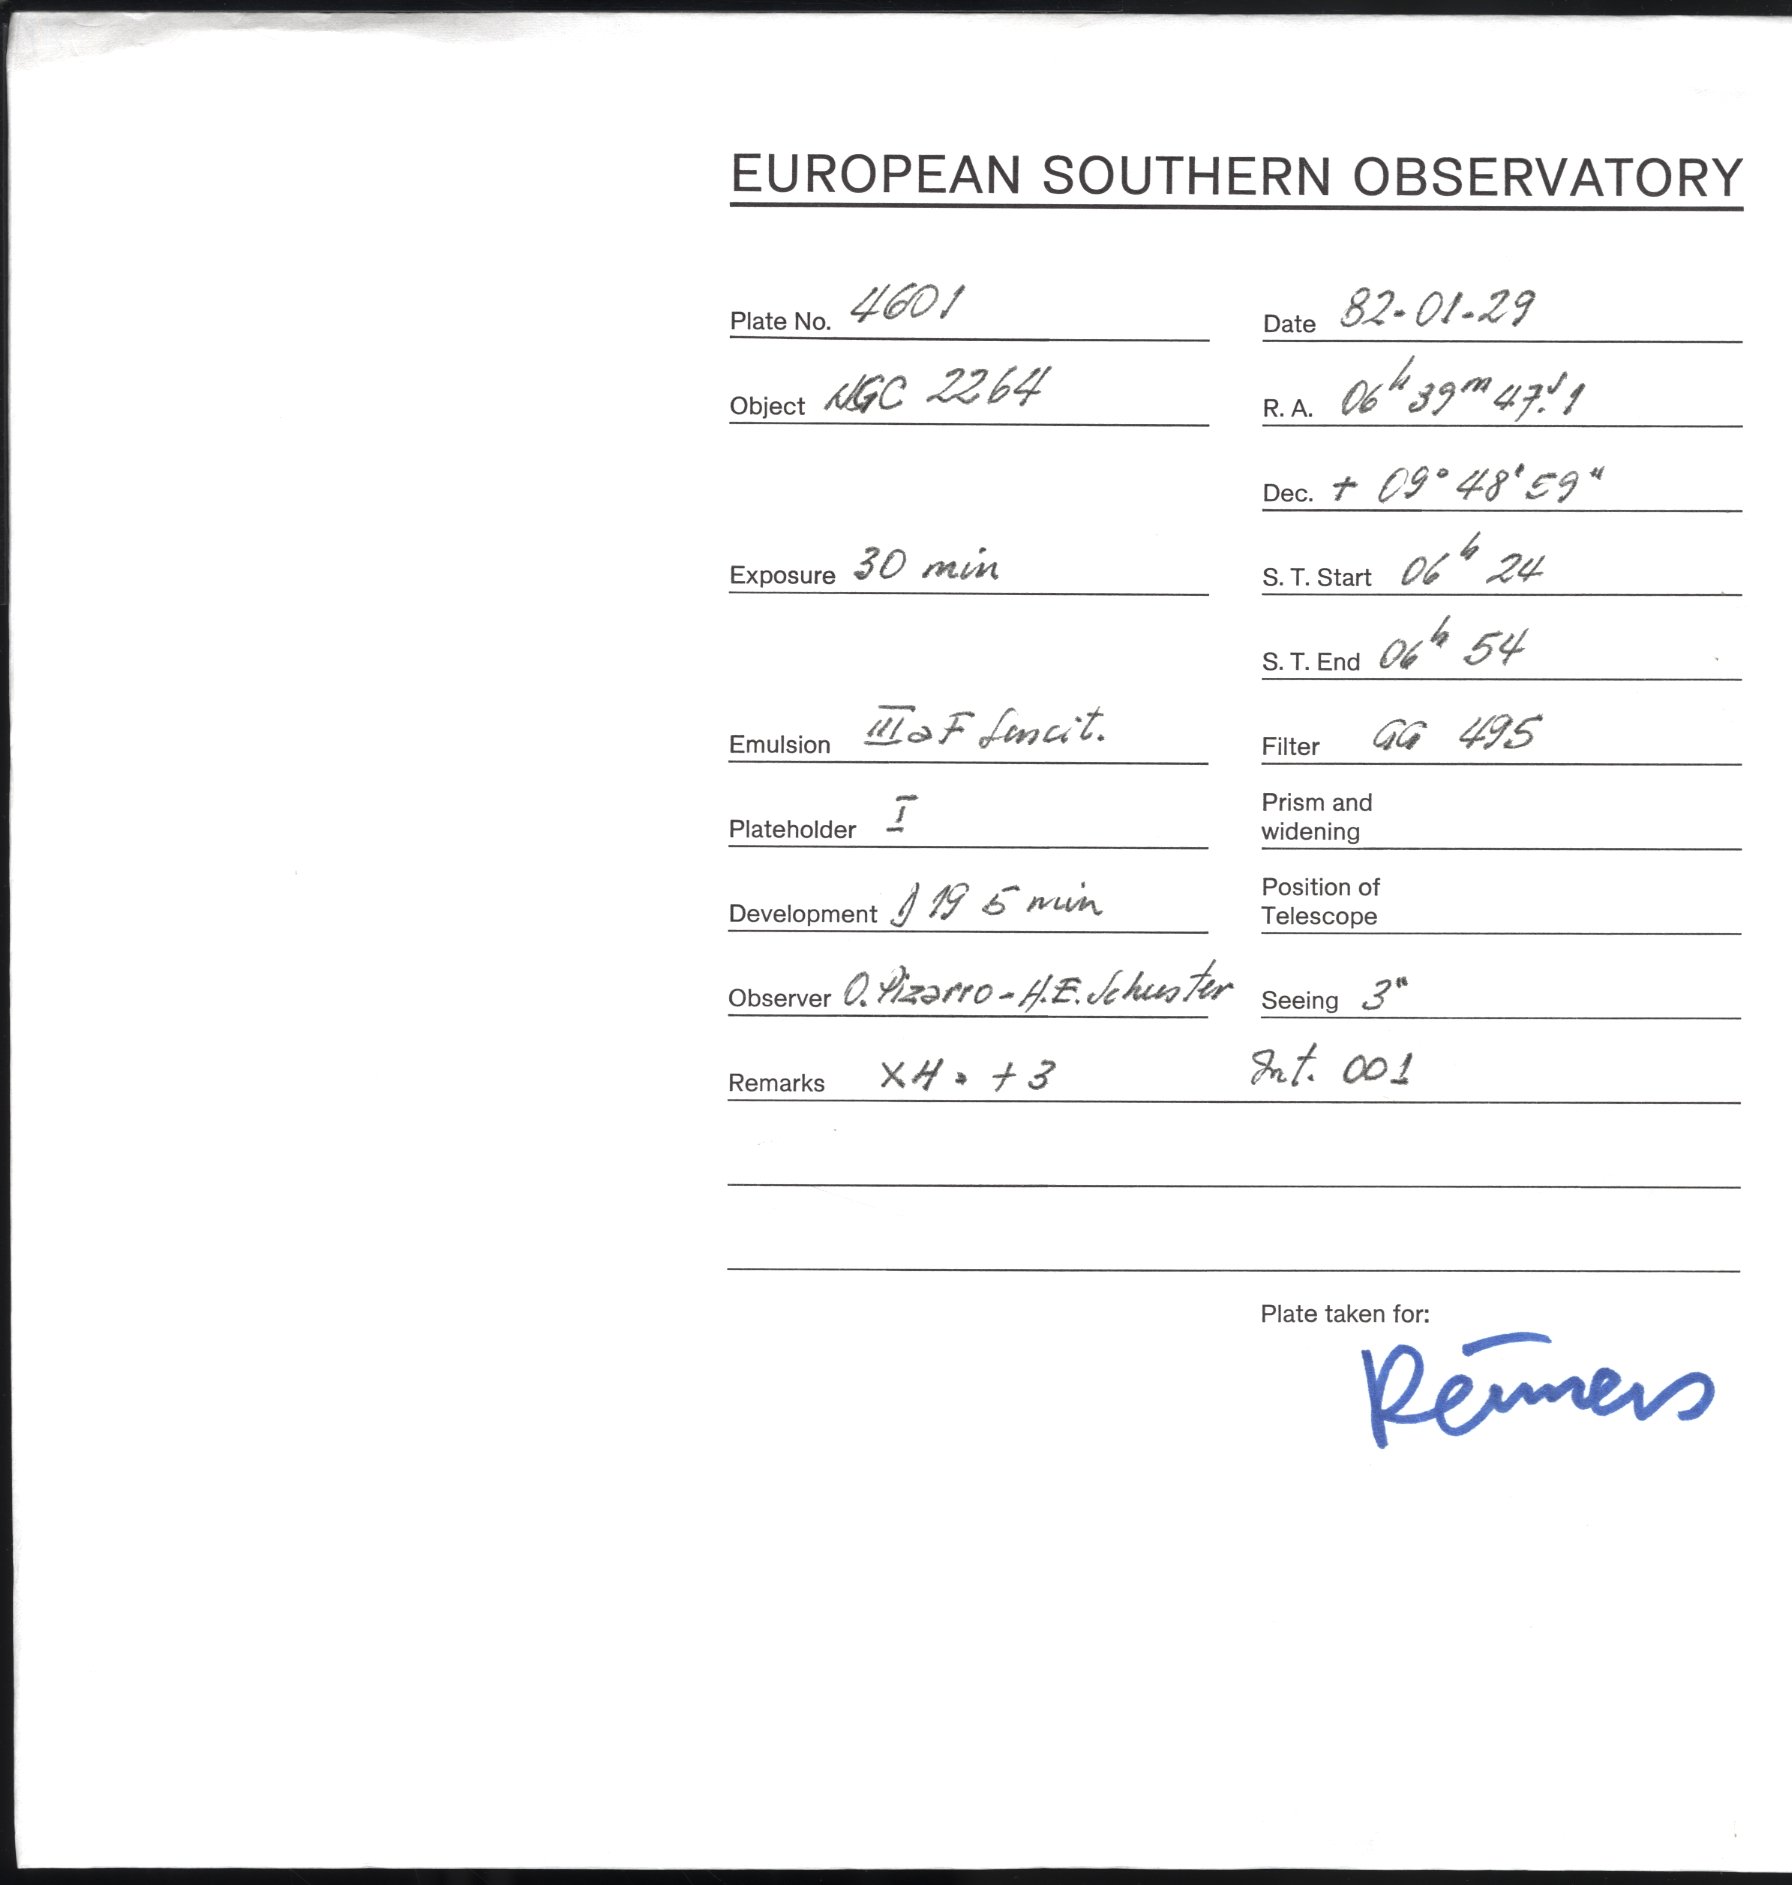 EUROPEAN SOUTHERN OBSERVATORY
Plate No. 4601 Date 82-01-29
Object NGC 2264 R. A. 06h 39m 47s.1
Dec. + 09° 48' 59"
Exposure 30 min S. T. Start 06h 24
S. T. End 06h 54
Emulsion III a F Sensit. Filter GG 495
Plateholder I Prism and
widening
Development D 19 5 min Position of
Telescope
Observer O. Pizarro - H.E. Schuster Seeing 3"
Remarks X4. +3 Int. 001
Plate taken for:
Reimers